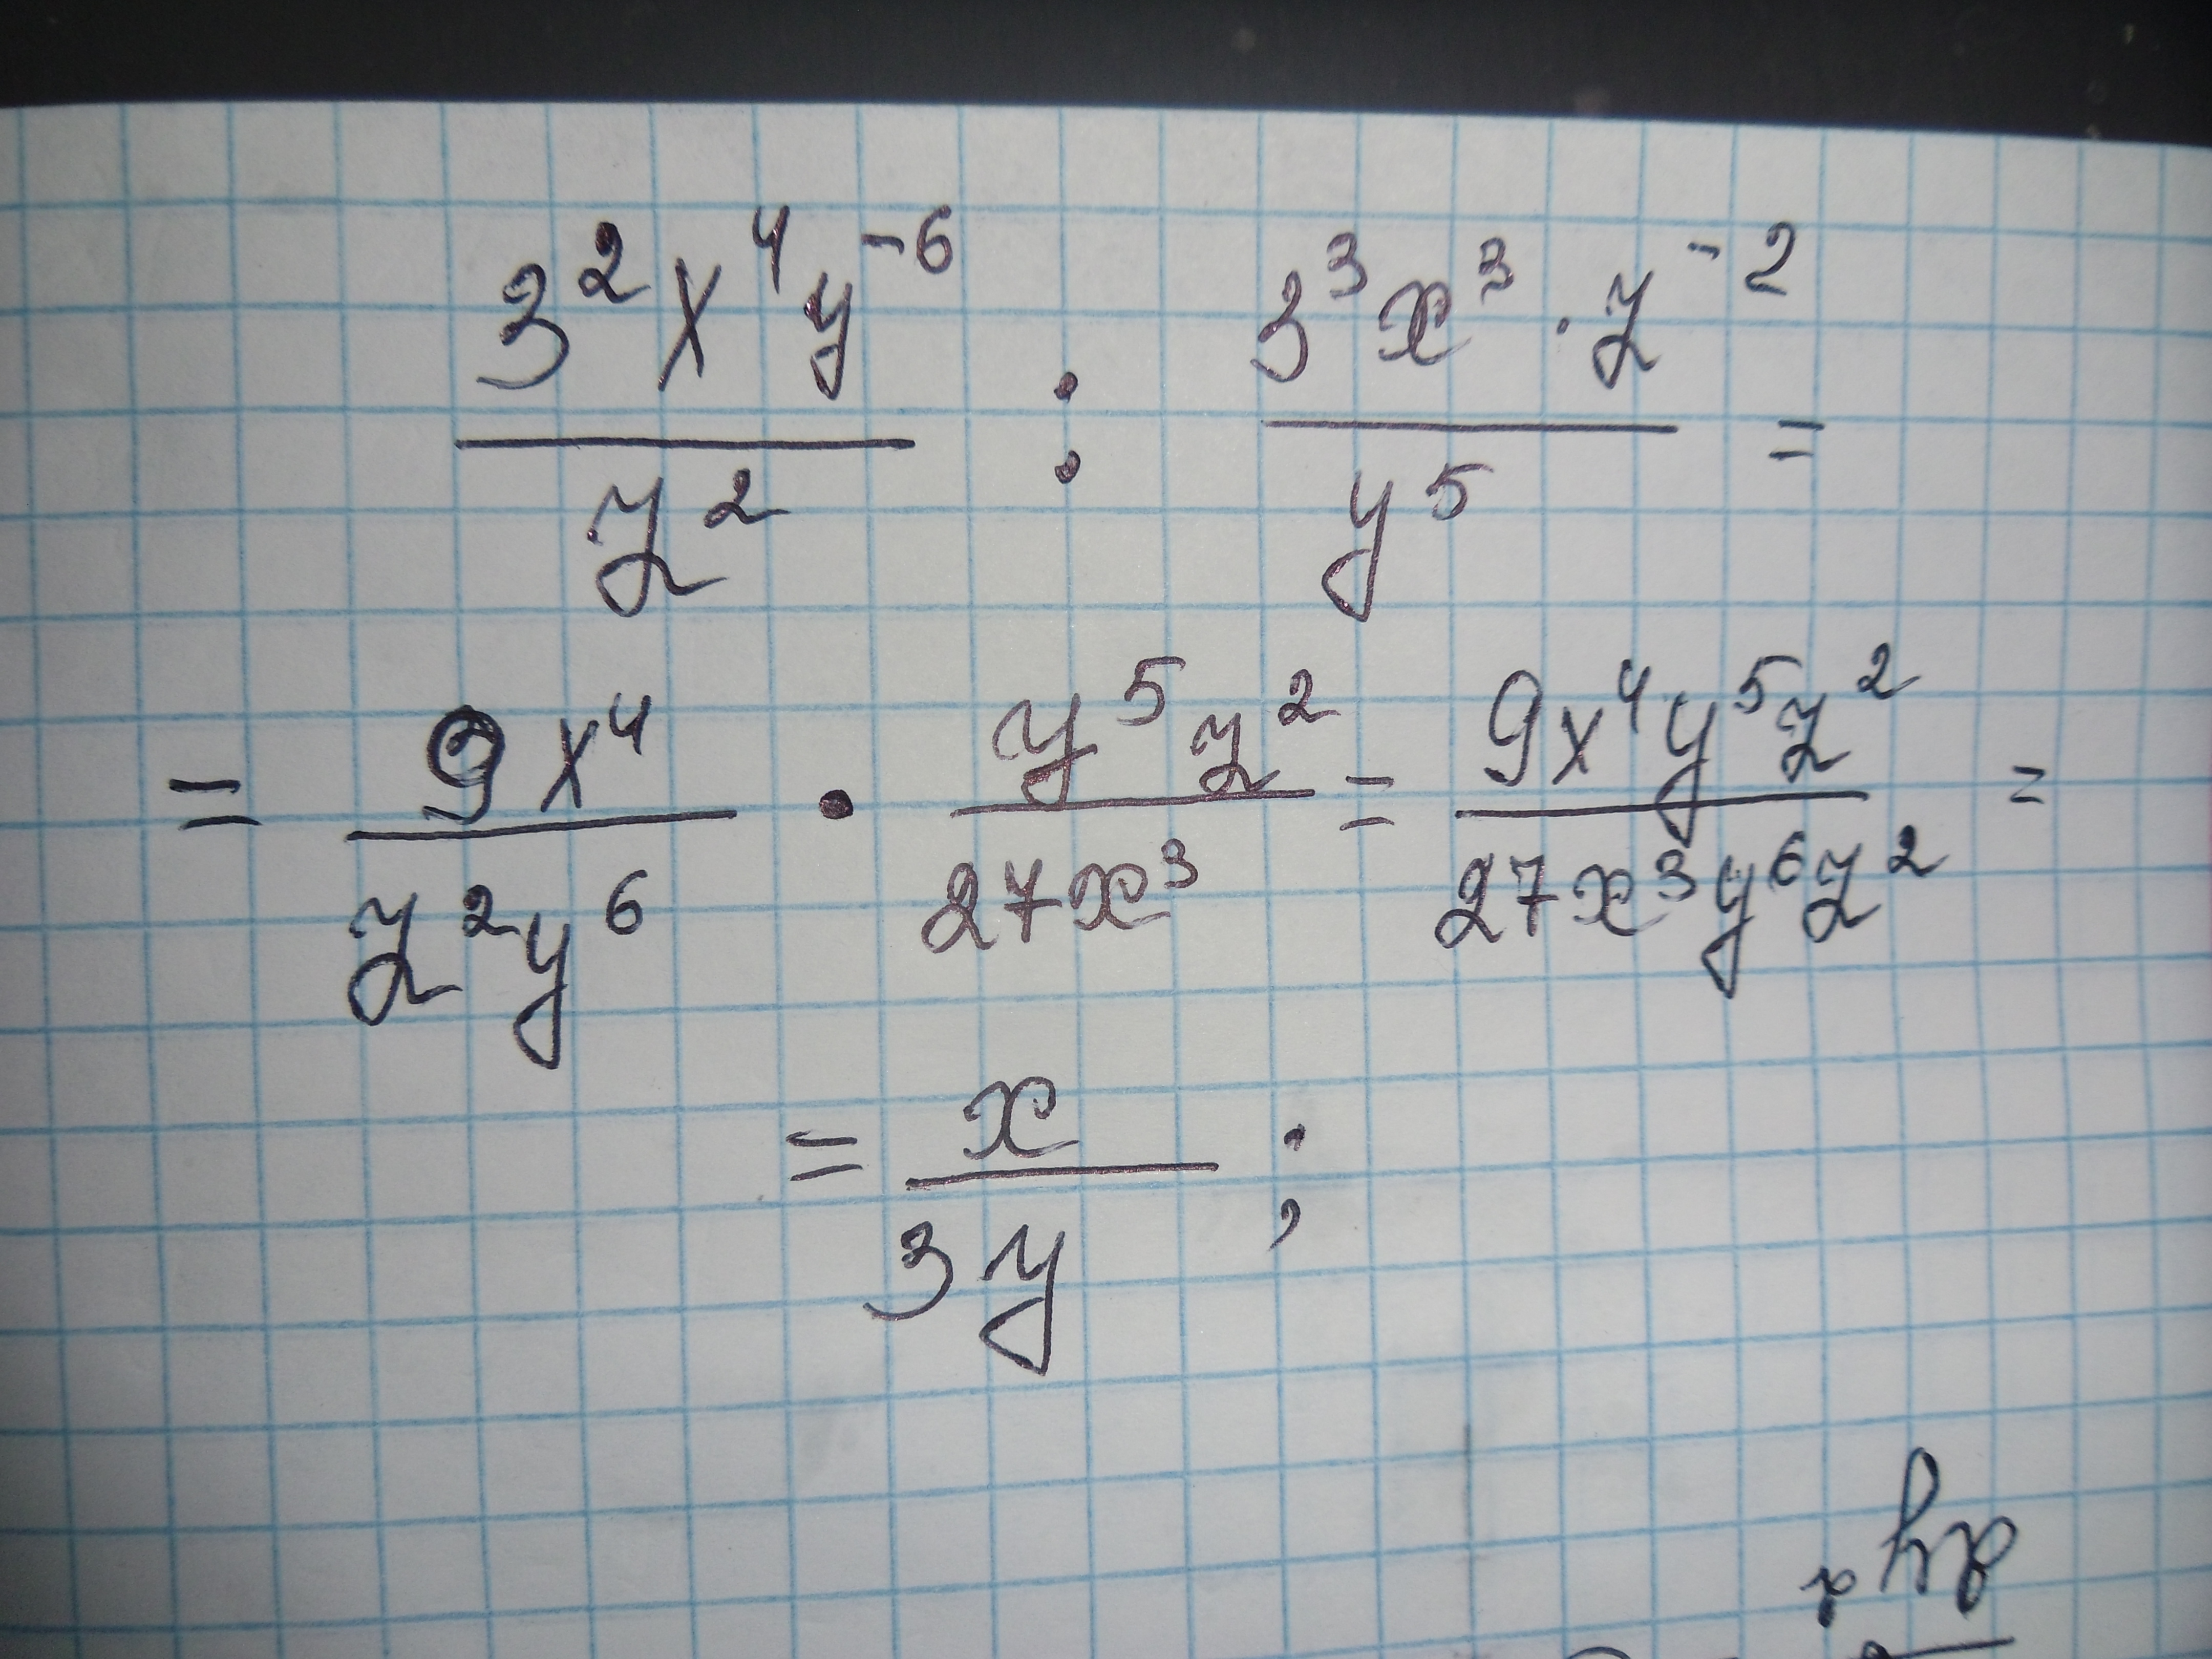 3²x⁴y⁻⁶ / z² : 3³x³·z⁻² / y⁵ =
= 9x⁴ / z²y⁶ • y⁵z² / 27x³ = 9x⁴y⁵z² / 27x³y⁶z² =
= x / 3y ;